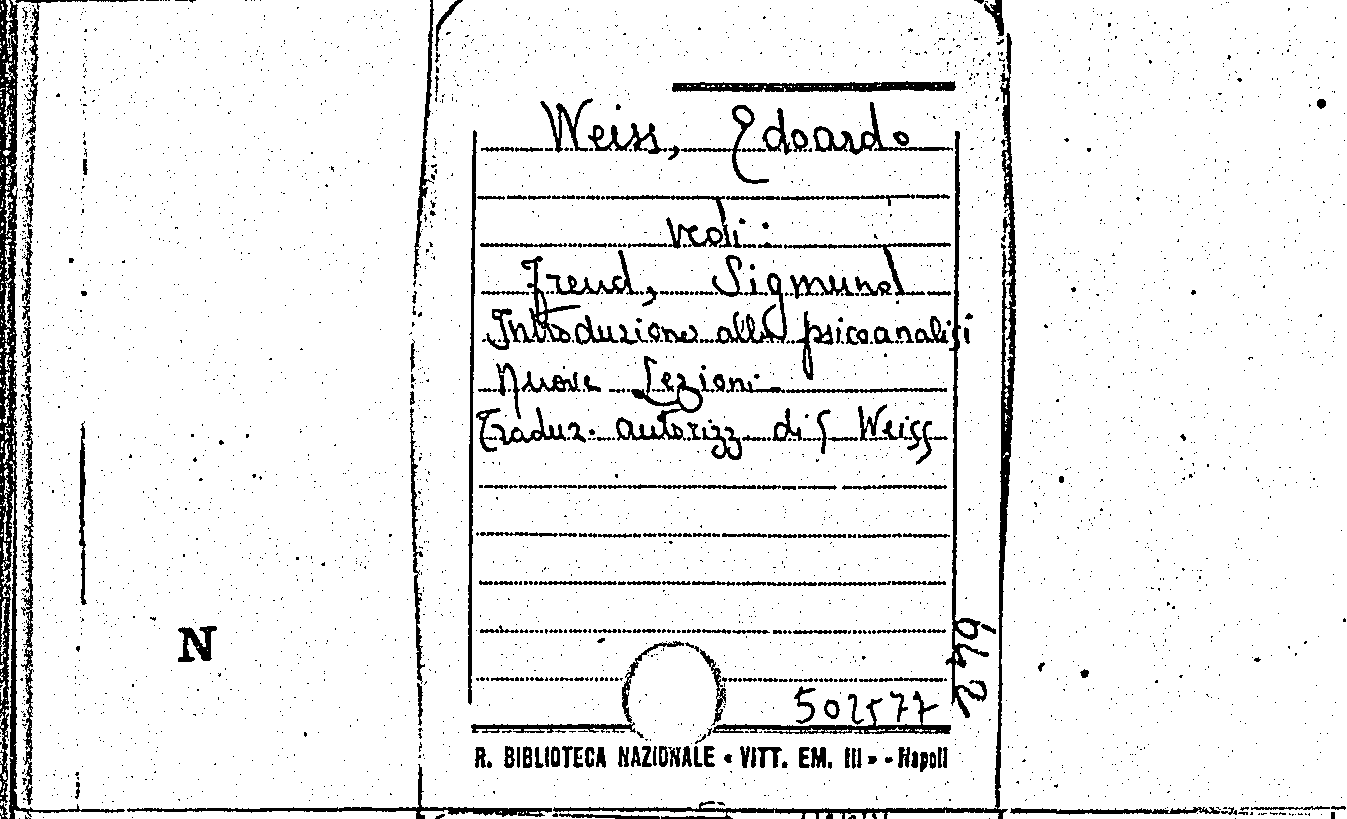 Weiss, Edoardo
vedi:
Freud, Sigmund
Introduzione alla psicoanalisi
Nuove Lezioni.
Traduz. autorizz. di Weiss
N
502577
642
R. BIBLIOTECA NAZIONALE « VITT. EM. III » - Napoli